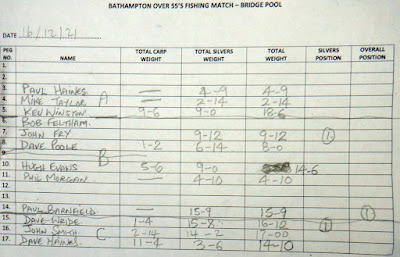 BATHAMPTON OVER 55'S FISHING MATCH – BRIDGE POOL
DATE 16/12/21
PEG NO. NAME TOTAL CARP WEIGHT TOTAL SILVERS WEIGHT TOTAL WEIGHT SILVERS POSITION OVERALL POSITION
1.
2.
3. PAUL HAINES — 4-9 4-9
4. MIKE TAYLOR A — 2-14 2-14
5. KEV WINSTON 9-6 9-0 18-6
6. BOB FELTHAM.
7. JOHN FRY 9-12 9-12 1
8. DAVE POOLE 1-2 6-14 8-0
9. B
10. HUGH EVANS 5-6 9-0 14-6
11. PHIL MORGAN — 4-10 4-10
14. PAUL BARNFIELD — 15-9 15-9 1
15. DAVE WRIDE 1-4 15-8 16-12 1
16. JOHN SMITH C. 2-14 14-2 17-00
17. DAVE HAINES 11-4 3-6 14-10